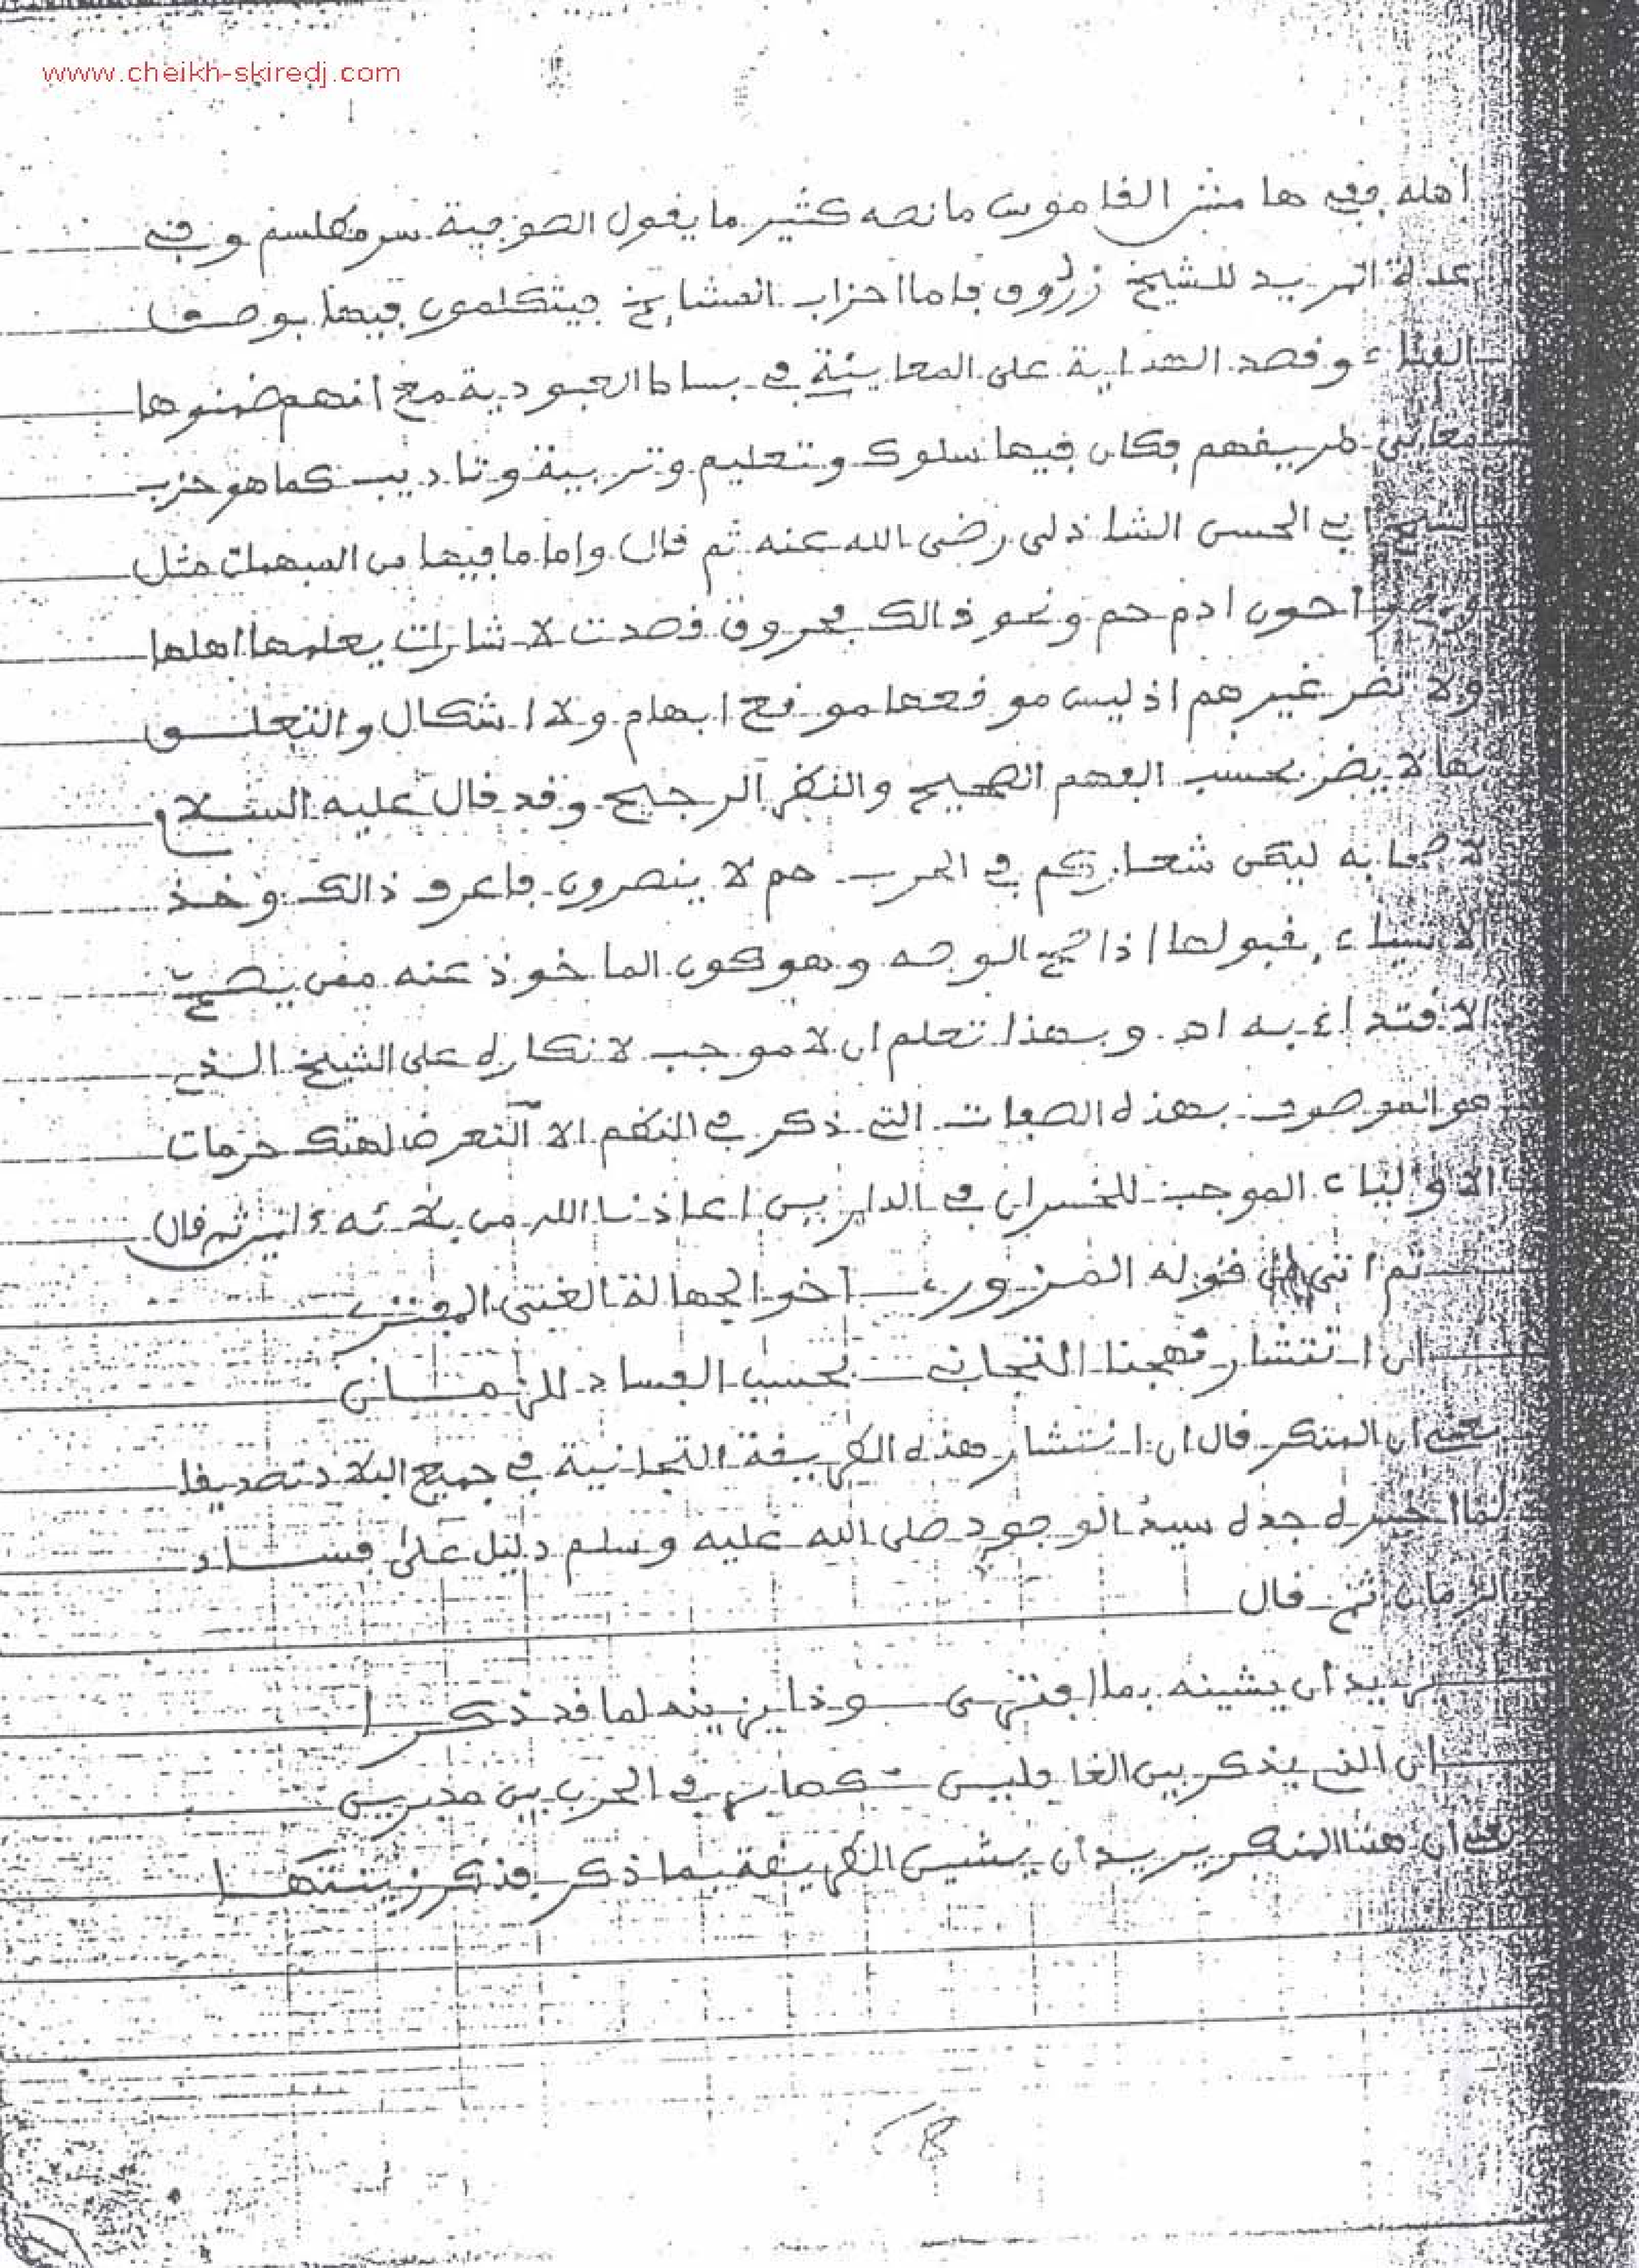 www.cheikh-skiredj.com
اهله ففي هامش القاموس ما نصه كثير ما يقول الصوفية سر مطلسم وفي
عدة المريد للشيخ زروق فاما احزاب المشايخ فيتكلمون فيها بوصف
وقصد الهداية على المعاينة في بساط العبودية مع انهم ضمنوها
معاني طريقهم فكان فيها سلوك وتعليم وتربية وتاديب كما هو حزب
الشيخ ابي الحسن الشاذلي رضي الله عنه ثم قال واما ما فيها من المبهمات مثل
احون ادم حم ونحو ذالك فحروف قصدت لاشارات يعلمها اهلها
ولا تضر غيرهم اذ ليس موقعها موقع ابهام ولا اشكال والتعلق
بها لا يضر بحسب الفهم الصحيح والنظر الرجيح وقد قال عليه السلام
لاصحابه ليكن شعاركم في الحرب حم لا ينصرون فاعرف ذالك وخذ
الاشياء بقبولها اذا صح الوجه وهو كون الماخوذ عنه ممن يصح
الاقتداء به اهـ وبهذا تعلم ان لا موجب لانكاره على الشيخ الذي
هو الموصوف بهذه الصفات التي ذكر في النظم الا التعرض لهتك حرمات
الاولياء الموجب للخسران في الدارين اعاذنا الله من بلائه ءامين ثم قال
ثم انتهى قوله المزور اخو الجهالة الغبي المفتر
ان انتشار نهجنا التجاني بحسب الفساد للزمان
يعني ان المنكر قال ان انتشار هذه الطريقة التجانية في جميع البلاد تصديقا
لما اخبره جده سيد الوجود صلى الله عليه وسلم دليل على فساد
الزمان ثم قال
يريد ان يشينه بما افترى وذا يزينه لما قد ذكرا
ان الذي يذكر بين الغافلين كصابر في الحرب بين مدبرين
يعني ان هذا المنكر يريد ان يشين الطريقة بما ذكر فذكر زينتها